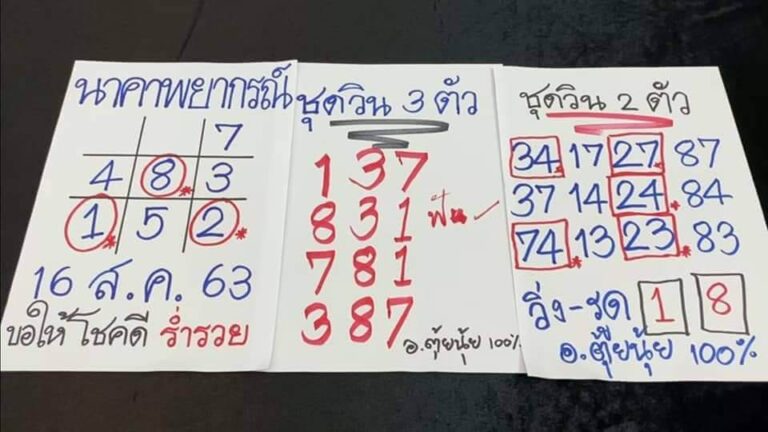 นาคาพยากรณ์
7
4 8 3
1 5 2
16 ส.ค. 63
ขอให้ โชคดี ร่ำรวย
ชุดวิน 3 ตัว
137
831 ฟัน
781
387
อ.ตุ้ยนุ้ย 100%
ชุดวิน 2 ตัว
34. 17 27. 87
37 14 24. 84
74. 13 23. 83
วิ่ง-รูด 1 8
อ.ตุ้ยนุ้ย 100%